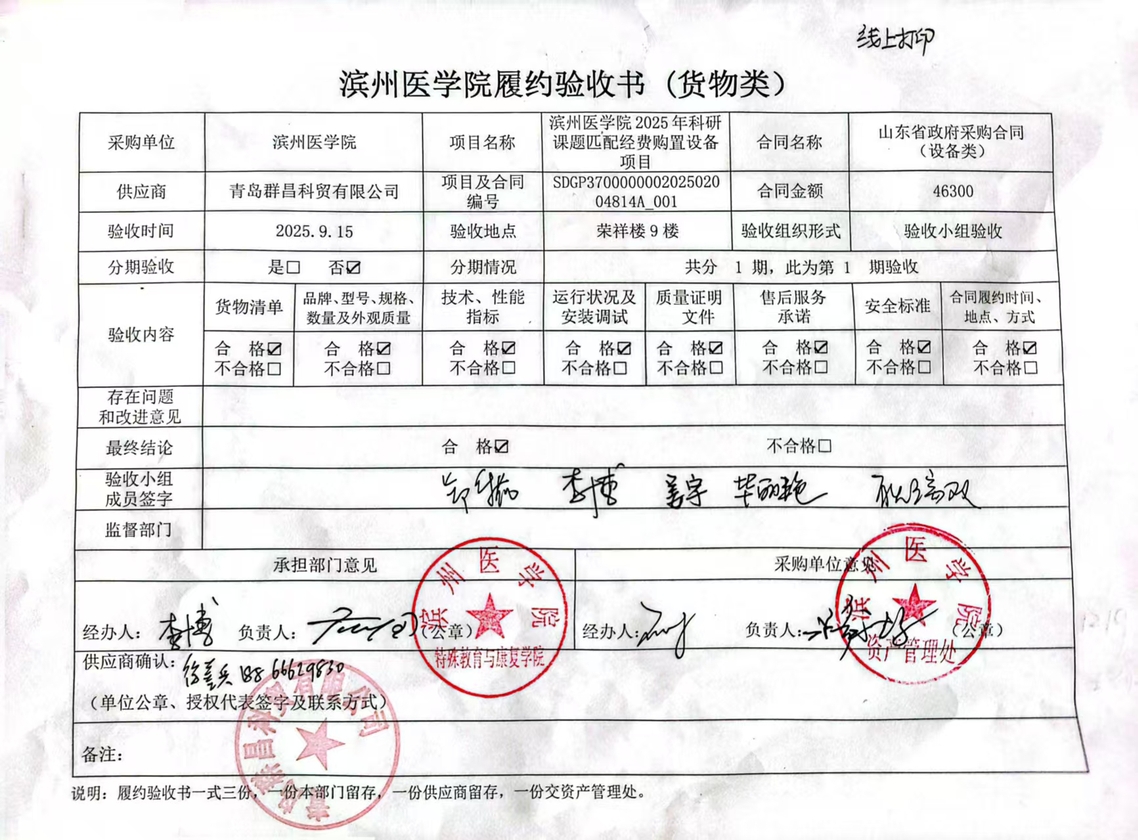 线上打印
滨州医学院履约验收书（货物类）
采购单位 滨州医学院 项目名称 滨州医学院 2025 年科研课题匹配经费购置设备项目 合同名称 山东省政府采购合同（设备类）
供应商 青岛群昌科贸有限公司 项目及合同编号 SDGP370000000202502004814A_001 合同金额 46300
验收时间 2025.9.15 验收地点 荣祥楼 9 楼 验收组织形式 验收小组验收
分期验收 是□ 否☑ 分期情况 共分 1 期，此为第 1 期验收
验收内容 货物清单 品牌、型号、规格、数量及外观质量 技术、性能指标 运行状况及安装调试 质量证明文件 售后服务承诺 安全标准 合同履约时间、地点、方式
合 格☑ 合 格☑ 合 格☑ 合 格☑ 合 格☑ 合 格☑ 合 格☑ 合 格☑
不合格□ 不合格□ 不合格□ 不合格□ 不合格□ 不合格□ 不合格□ 不合格□
存在问题和改进意见
最终结论 合 格☑ 不合格□
验收小组成员签字 李博 姜宇 毕丽艳
监督部门
承担部门意见 采购单位意见
经办人：李博 负责人： （公章） 经办人： 负责人： （公章）
滨州医学院
特殊教育与康复学院
滨州医学院
资产管理处
供应商确认：
（单位公章、授权代表签字及联系方式）
青岛群昌科贸有限公司
备注：
说明：履约验收书一式三份，一份本部门留存，一份供应商留存，一份交资产管理处。